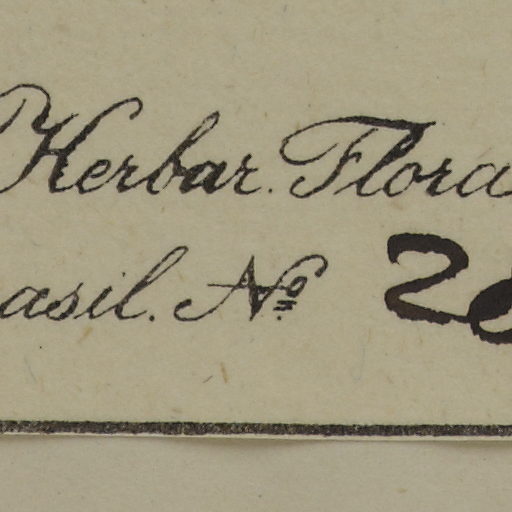 Herbar. Flora
asil. № 2